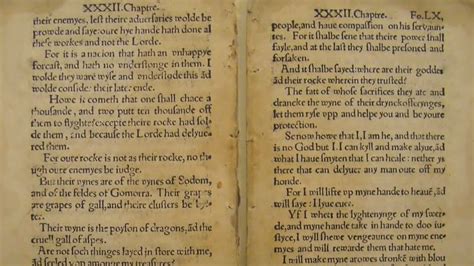 XXXII. Chaptre.
their enemyes, lest theire adversaries wolde be
prowde and saye: oure hye hande hath done al
these workes and not the Lorde.
For it is a nacion that hath an unhappye
forcast, and hath no understonge in them. I
wolde they ware wyse and understode this, ād
wolde consider their later ende.
Howe is it cometh that one shall chace a
thousande, and two putt ten thousande off
them to flyghte? excepte theire rocke had solde
them, and because the Lorde had delyue
red them.
For oure rocke is not as their rocke, no, though
oure enemyes be iudge.
But their vynes are of the vynes of Sodom,
and of the feldes of Gomorra. Their grapes
are grapes of gall, and their clusters be by
Their wyne is the poyson of dragons, ād the
cruell gall of aspes.
Are not soch thinges layed in store with me,
ād seeled vpp amonges my treasures?
XXXII. Chaptre. Fo. LX,
people, and have compassion on his servaun
tes. For it shalbe sene that theire power shall
fayle, and at the last they shalbe presoned and
forsaken.
And it shalbe sayed: where are their goddes
ād their rocke wherein they trusted?
The fatt of whose sacrifices they ate and
drancke the wyne of their drynckofferynges,
let them ryse vpp and helpe you and be youre
protection.
Se now howe that I, I am he, and that there
is no God but I. I can kyll and make alyue, ād
what I haue smyten that I can heale: nether ys
there that can delyuer any man oute off my
honde.
For I will lifte vp myne hande to heauē, ād
will saye: I lyue euer.
Yf I whett the lyghtenynge of my swer
de, and myne hande take in hande to doo iu
styce, I will shewe vengeaunce on myne ene
myes and will rewarde them that hate me.
I will make myne arowes dronkē with blou